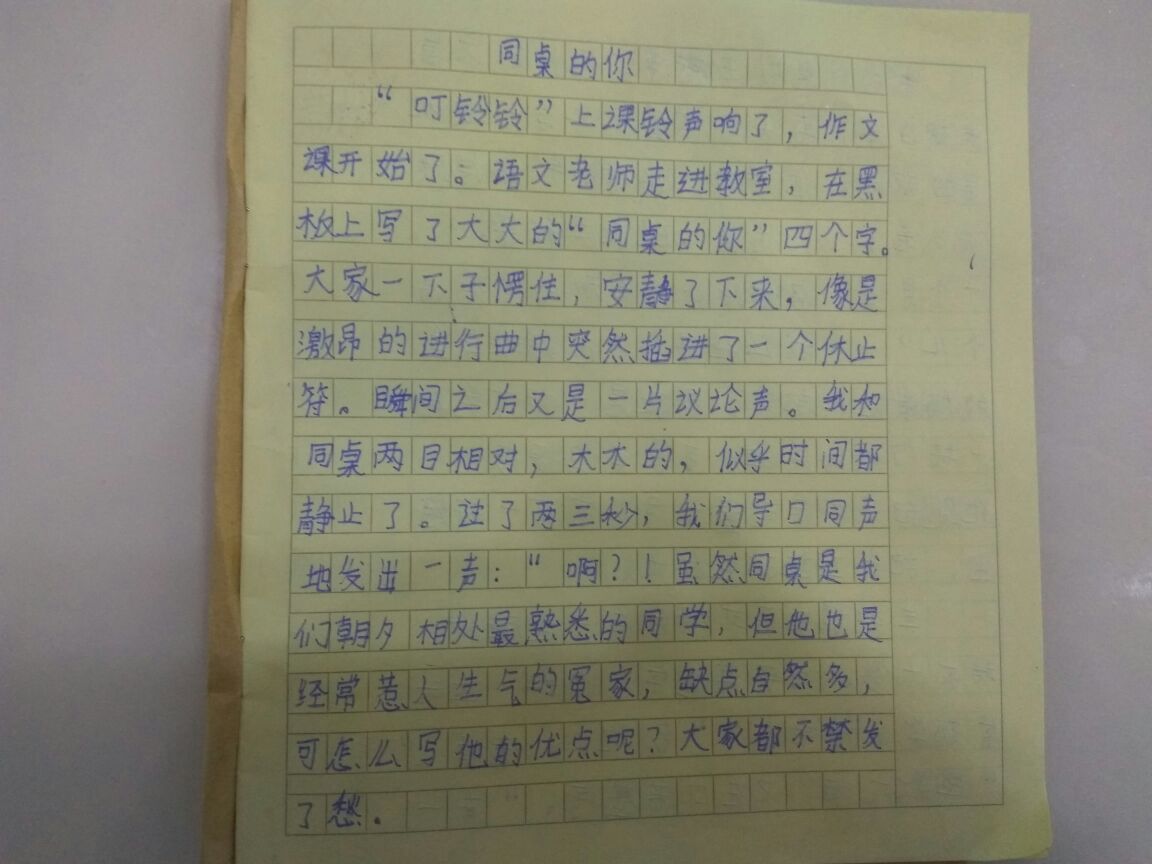 同桌的你
“叮铃铃”上课铃声响了，作文
课开始了。语文老师走进教室，在黑
板上写了大大的“同桌的你”四个字。
大家一下子愣住，安静了下来，像是
激昂的进行曲中突然插进了一个休止
符。瞬间之后又是一片议论声。我和
同桌两目相对，木木的，似乎时间都
静止了。过了两三秒，我们异口同声
地发出一声：“啊？！虽然同桌是我
们朝夕相处最熟悉的同学，但他也是
经常惹人生气的冤家，缺点自然多，
可怎么写他的优点呢？大家都不禁发
了愁。